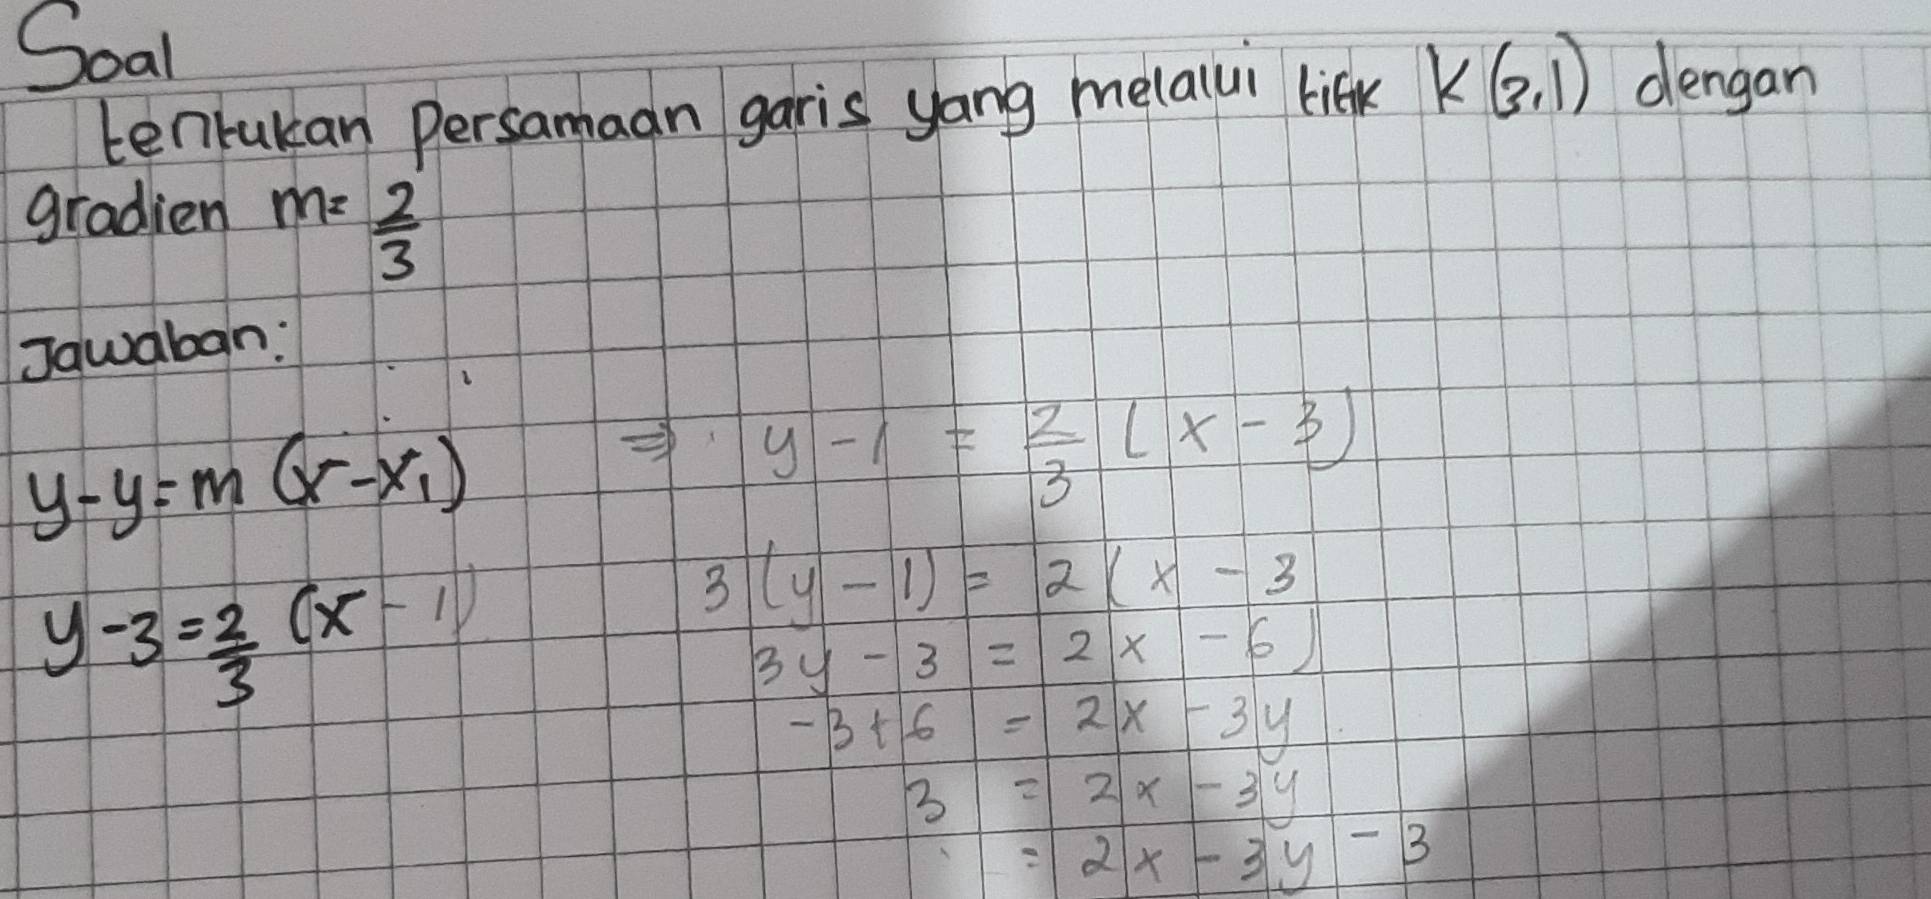 Soal
tentukan persamaan garis yang melalui titik K (3,1) dengan
gradien m= 2/3
Jawaban:
y-y=m (x-x₁)
y-3=2/3 (x-1)
⇒ y-1 = 2/3 (x-3)
3(y-1) = 2(x-3
3y-3 = 2x-6)
-3+6 = 2x-3y
3 = 2x-3y
= 2x-3y-3